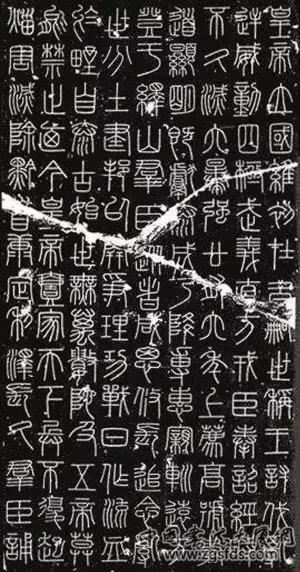 皇帝立國維初在昔嗣世稱王討伐亂
逆威動四極武義直方戎臣奉詔經時
不久滅六暴強廿有六年上薦高號孝
道顯明既獻泰成乃降專惠親巡遠方
登于繹山群臣從者咸思攸長追念亂
世分土建邦以開爭理功戰日作流血
於野自泰古始世無萬數陀及五帝莫
能禁止廼今皇帝壹家天下兵不復起
災害滅除黔首康定利澤長久群臣誦
www.zgsfds.com